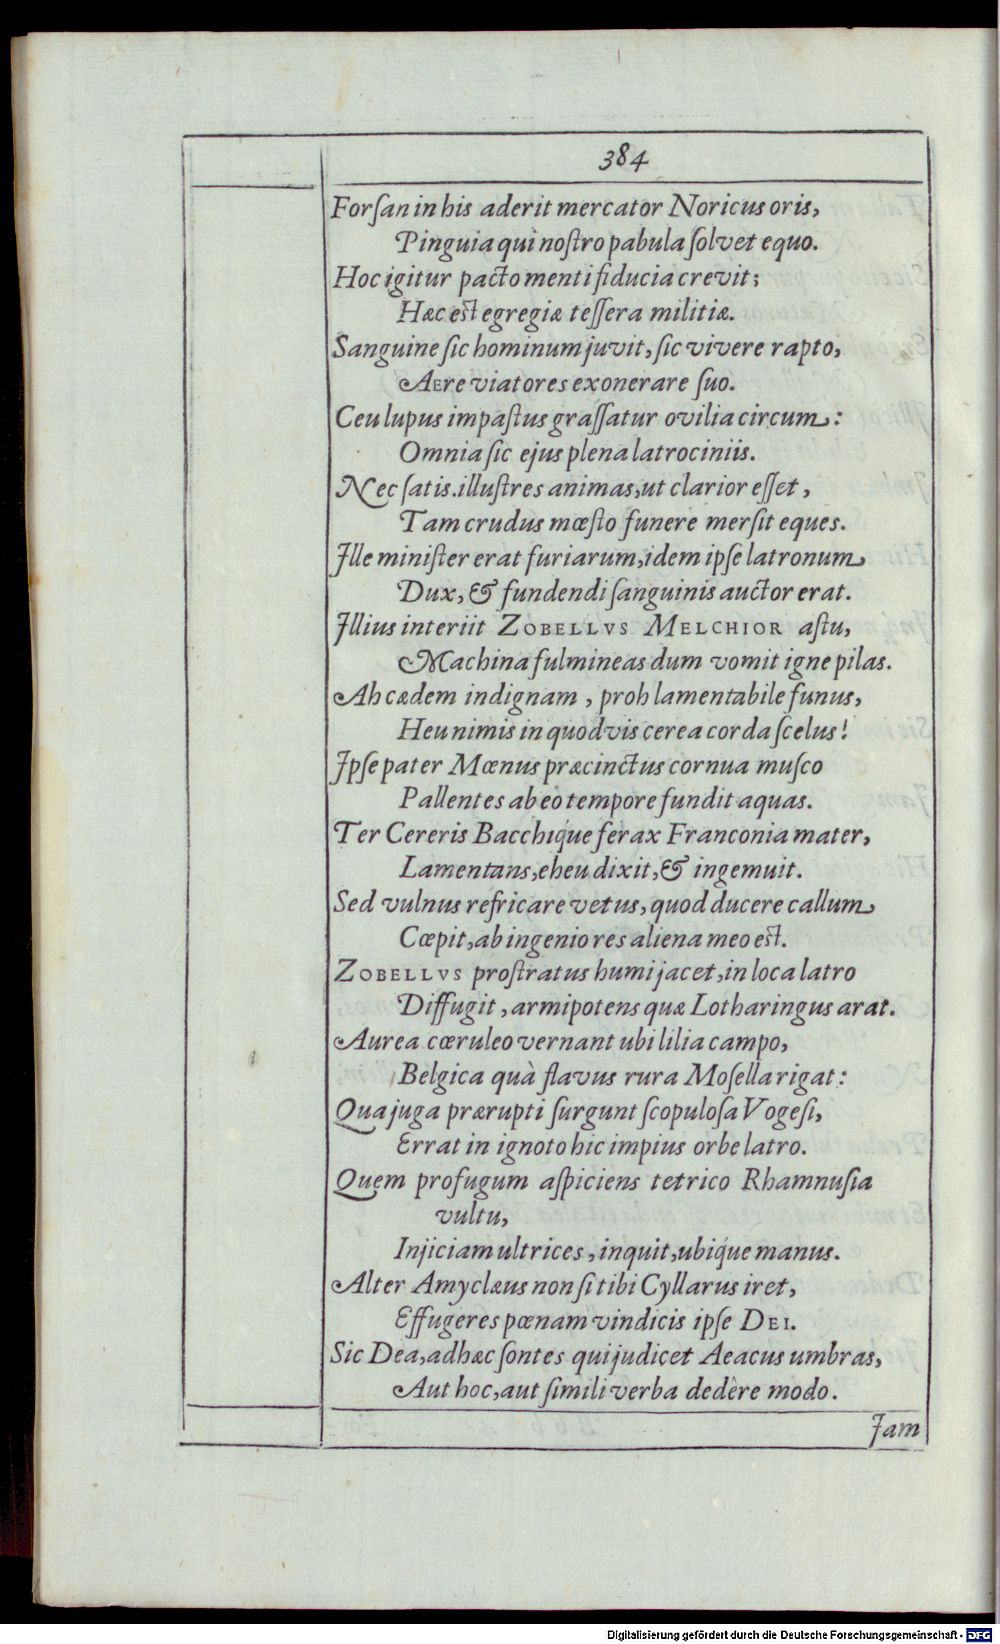 384
Forſan in his aderit mercator Noricus oris,
Pinguia qui noſtro pabula ſolvet equo.
Hoc igitur pacto menti fiducia crevit;
Hæc eſt egregiæ teſſera militiæ.
Sanguine ſic hominum juvit, ſic vivere rapto,
Aere viatores exonerare ſuo.
Ceu lupus impaſtus graſſatur ovilia circum:
Omnia ſic ejus plena latrociniis.
Nec ſatis. illuſtres animas, ut clarior eſſet,
Tam crudus mœſto funere merſit eques.
Ille miniſter erat furiarum, idem ipſe latronum
Dux, & fundendi ſanguinis auctor erat.
Illius interiit ZOBELLVS MELCHIOR aſtu,
Machina fulmineas dum vomit igne pilas.
Ah cædem indignam, proh lamentabile funus,
Heu nimis in quodvis cerea corda ſcelus!
Ipſe pater Mœnus præcinctus cornua muſco
Pallentes ab eo tempore fundit aquas.
Ter Cereris Bacchiq́ue ferax Franconia mater,
Lamentans, eheu dixit, & ingemuit.
Sed vulnus refricare vetus, quod ducere callum
Cœpit, ab ingenio res aliena meo eſt.
ZOBELLVS proſtratus humi jacet, in loca latro
Diffugit, armipotens quæ Lotharingus arat.
Aurea cœruleo vernant ubi lilia campo,
Belgica quà flavus rura Moſella rigat:
Qua juga prærupti ſurgunt ſcopuloſa Vogeſi,
Errat in ignoto hic impius orbe latro.
Quem profugum aſpiciens tetrico Rhamnuſia
vultu,
Injiciam ultrices, inquit, ubiq́ue manus.
Alter Amyclæus non ſi tibi Cyllarus iret,
Effugeres pœnam vindicis ipſe DEI.
Sic Dea, ad hæc ſontes qui judicet Aeacus umbras,
Aut hoc, aut ſimili verba dedère modo.
Jam
Digitalisierung gefördert durch die Deutsche Forschungsgemeinschaft - DFG